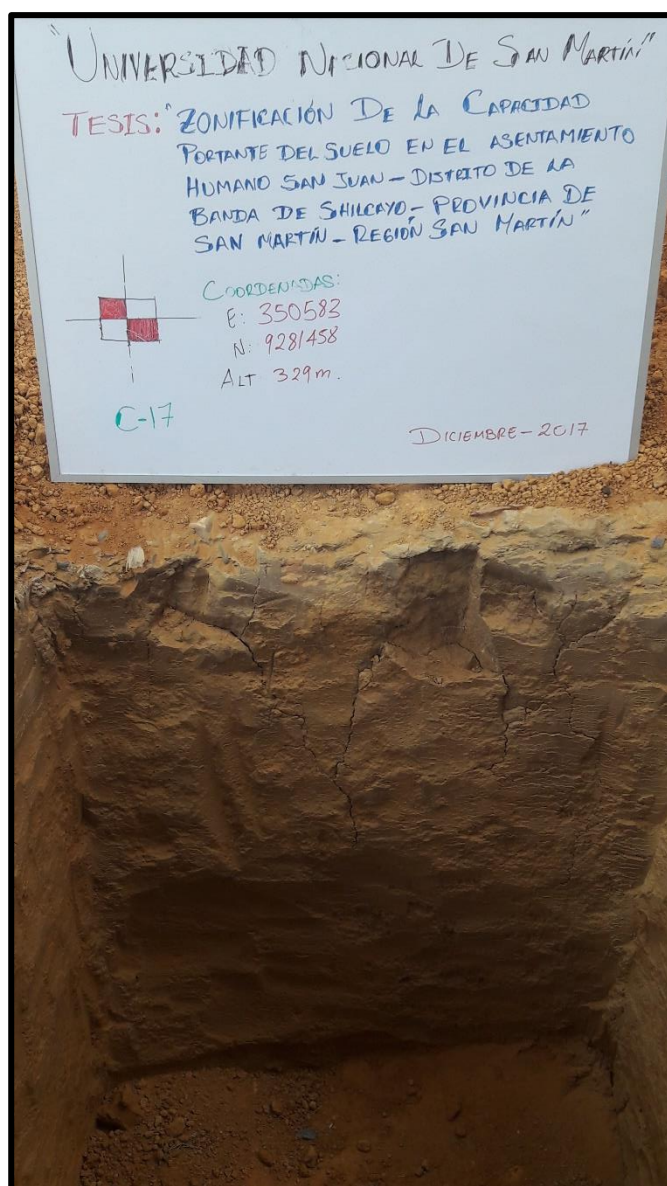 "UNIVERSIDAD NACIONAL DE SAN MARTÍN"
TESIS: "ZONIFICACIÓN DE LA CAPACIDAD
PORTANTE DEL SUELO EN EL ASENTAMIENTO
HUMANO SAN JUAN - DISTRITO DE LA
BANDA DE SHILCAYO - PROVINCIA DE
SAN MARTÍN - REGIÓN SAN MARTÍN"
COORDENADAS:
E: 350583
N: 9281458
ALT 329m.
C-17
DICIEMBRE - 2017